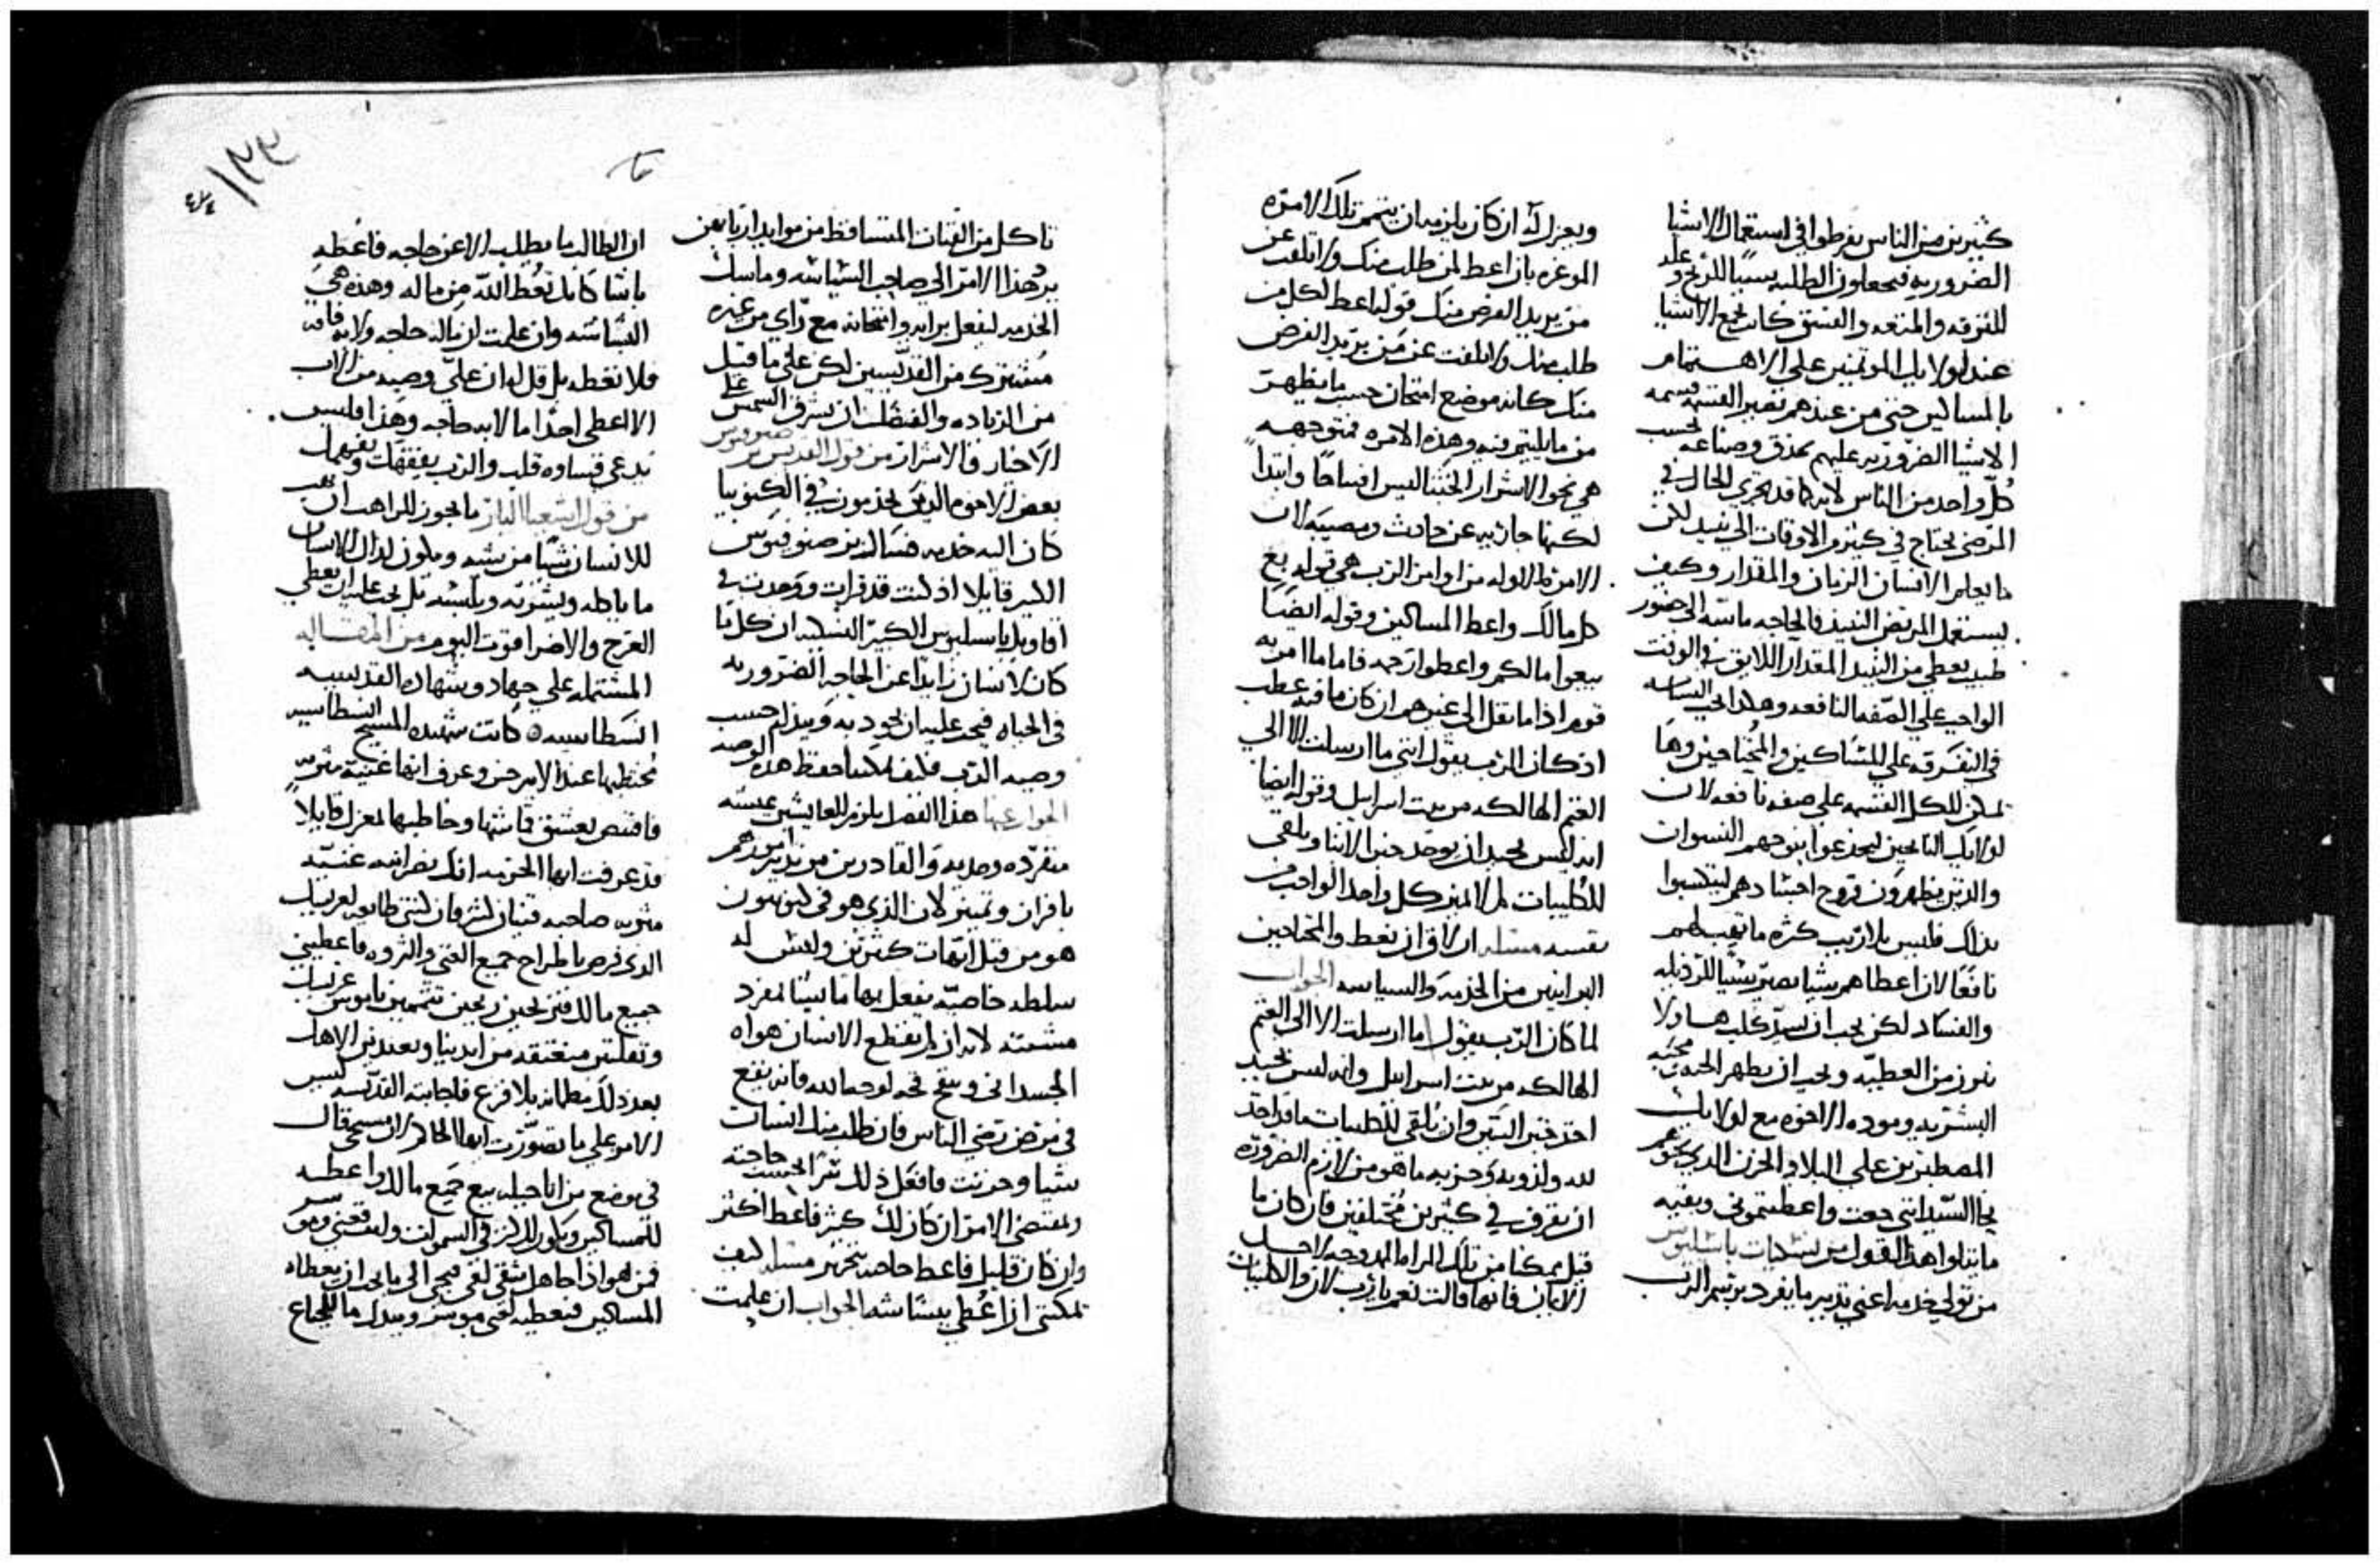 كثيرين من الناس يفرطوا في استعمال الاشيا
الضروريه فيجعلون الطلبه سببًا للربح وعله
للترفه والمتعه والفسق كانت تجمع الاشيا
عند اولايك الموتمنين على الاهتمام
بالمساكين حتى من عندهم تصير القسمه قسمه
الاشيا الضروريه عليهم بحذق وصناعه بحسب
كل واحد من الناس لانه كما قد يجري الحال في
المرضى يحتاج في كثير من الاوقات الى نبيد لكن
ما يعلم الانسان الزمان والمقدار وكيف
يستعمل المريض النبيد فالحاجه ماسه الى حضور
طبيب يعطي من النبيد المقدار اللايق في الوقت
الواجب على الصفه النافعه وهكذا الحي السياسه
في التفرقه على المساكين والمحتاجين وها
تمكن للكل القسمه على صفه نافعه لان
اولايك النايحين ليخدعوا بنوحهم النسوان
والذين يظهرون قروح اجسادهم ليتكسبوا
بذلك فليس بلا ريب كثره ما تعطيهم
نافعًا لان اعطاهم شيا يصير سببًا للرذيله
والفساد لكن يجب ان نسد كلبهم اولا
بنزر من العطيه ويجب ان يظهر الحنو محبه
البشريه وموده الاخوه مع اولايك
المصطبرين على البلا والحزن الذي نحوهم
يجا السيد انني جعت واعطيتموني وبقيه
ما يتلوا هذا القول من نسكيات باسليوس
من تولى خدمه اعني تدبير ما يفرد برسم الرب
ويعزل له ان كان يلزمه ان يتمم تلك الامره
الموعزه بان اعط لمن طلب منك ولا تلتفت عن
من يريد القرض منك قوله اعط لكل من
طلب منك ولا تلتفت عن من يريد القرض
منك كانه موضع امتحان حسب ما يظهر
من ما يليتم فيه وهذه الامره متوجهه
هي نحو الاشرار الخبثا ليس افساحًا وابتداً
لكنها جاريه عن حادث ومصيبه لان
الامره الاوله من اوامر الرب هي قوله بع
كل مالك واعط المساكين وقوله ايضًا
بيعوا مالكم واعطوا رحمه فاما ما امر به
قوم اذا ما نقل الى غيرهم ان كان ما فيه عطب
اذ كان الرب يقول انني ما ارسلت الا الى
الغنم الهالكه من بيت اسراييل وقوله ايضًا
انه ليس بجيد ان يوخذ خبز الابنا ويلقى
للكليبات لم لا يميز كل واحد الواجب من
نفسه مسله ان لاق ان نعط المحتاجين
البرانيين من الخدمه والسياسه الجواب
لما كان الرب يقول ما ارسلت الا الى الغنم
الهالكه من بيت اسراييل وانه ليس بجيد
اخذ خبز البنين وان يلقى للكليبات ما قد اخذ
لله ولذويه وحزبه ما هو من لازم الضروره
ان يفرق في كثيرين مختلفين فان كان ما
قيل ممكنا من تلك المراه الممدوحه لاجل
الايمان فانها قالت نعم يا رب لان والكليبات
تاكل من الفتات المتساقط من موايد اربابهن
يرد هذا الامر الى صاحب السياسه وماسك
الخدمه ليفعل برايه وامتحانه مع راي من غيره
مشترك من القديسين لكن على ما قيل
من الزياده والفضل ان يشرق الشمس على
الاخيار والاشرار من قول القديس صفرونيوس
بعض الاخوه الذين يخدمون في الكينوبيا
كان اليه خدمه فسال الاب صفرونيوس
الكبير قايلا اذ كنت قد قرات ووجدت في
اقاويل باسليوس الكبير النسكيه ان كل ما
كان لانسان زايدًا عن الحاجه الضروريه
في الحياه فيجب عليه ان يجود به ويبذله حسب
وصيه الرب فكيف يمكننا حفظ هذه الوصيه
الجواب عنها هذا الفصل يلزم للعايشين عيشه
منفرده وحديه والقادرين من تدبير امورهم
بافراز وتمييز لان الذي هو في كينوبيون
هو من قبل امهات كثيرين وليس له
سلطه خاصيه يفعل بها ما يشا لمفرد
مشيته لانه ان لم يقطع الانسان هواه
الجسداني ويبقح قحه لوجه الله فانه يقع
في مرض ترضي الناس فان طلب منك انسان
شيا وحزنت فافعل ذلك شرا بحسب حاجته
ومقتضى الامر ان كان لك كثير فاعط اكثر
وان كان قليل فاعط حاجته بتحرير مسله كيف
تمكني ان اعطي ببشاشه الجواب ان علمت
ان الطالب ما يطلب الا عن حاجه فاعطه
باشا كانك تعط الله من ماله وهذه هي
البشاشه وان علمت ان ماله حاجه ولا به فاقه
فلا تعطه بل قل له ان عليّ وصيه من الاب
الا اعطي احدًا ما لا به حاجه وهذا فليس
يدعى قساوه قلب والرب يفقهك ويفهمك
من قول اشعيا الباز ما يجوز للراهب ان يهب
للانسان شيا من يشه ويكون لذلك الانسان
ما ياكله ويشربه ويلبسه بل يجب عليه ان يعطي
العرج والاضرا قوت اليوم من المقاله
المشتمله على جهاد وشهاده القديسه
انسطاسيه كانت شهيده المسيح انسطاسيه
محتظيها عند الامير حين وعرف انها غنيه مثريه
فاقتنص بعشق قماشها وخاطبها بمعزل قايلاً
قد عرفت ايها الحزينه انك نصرانيه غنيه
مثريه صاحبه قنيان كثير فان كنتي طايعه لعريسك
الذي فرض باطراح جميع الغنى والثروه فاعطيني
جميع مالك فتربحين ربحين تتممين ناموس عريسك
وتفلتين منعتقه من ايدينا وتعبدين الاهك
بعد ذلك مطمانه بلا فزع فاجابته القديسه ليس
الامر على ما تصورت ايها الحاكم لان مسيحي قال
في موضع من اناجيله بيع جميع مالك واعطه
للمساكين ويكون لك كنز في السموات واتبعني
فمن هو اذا جاهل شقي لقي ميجي الى ما يجب ان يعطاه
المساكين فيعطيه لغني موسر ويبدل مال الجياع